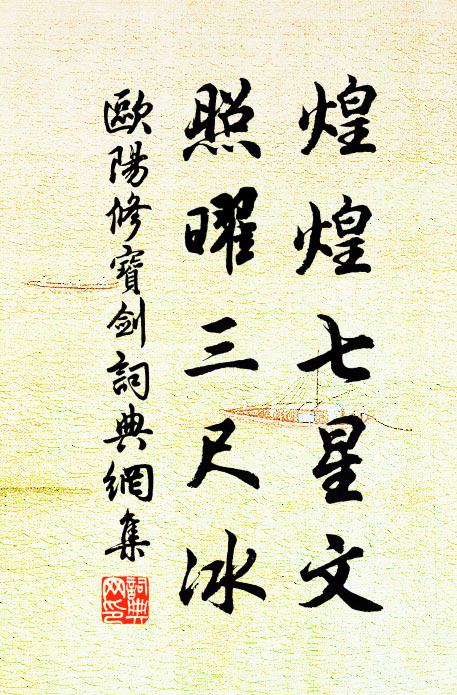 煌煌七星文
照曜三尺冰
歐陽修寶劍詞典網集
詞典网印